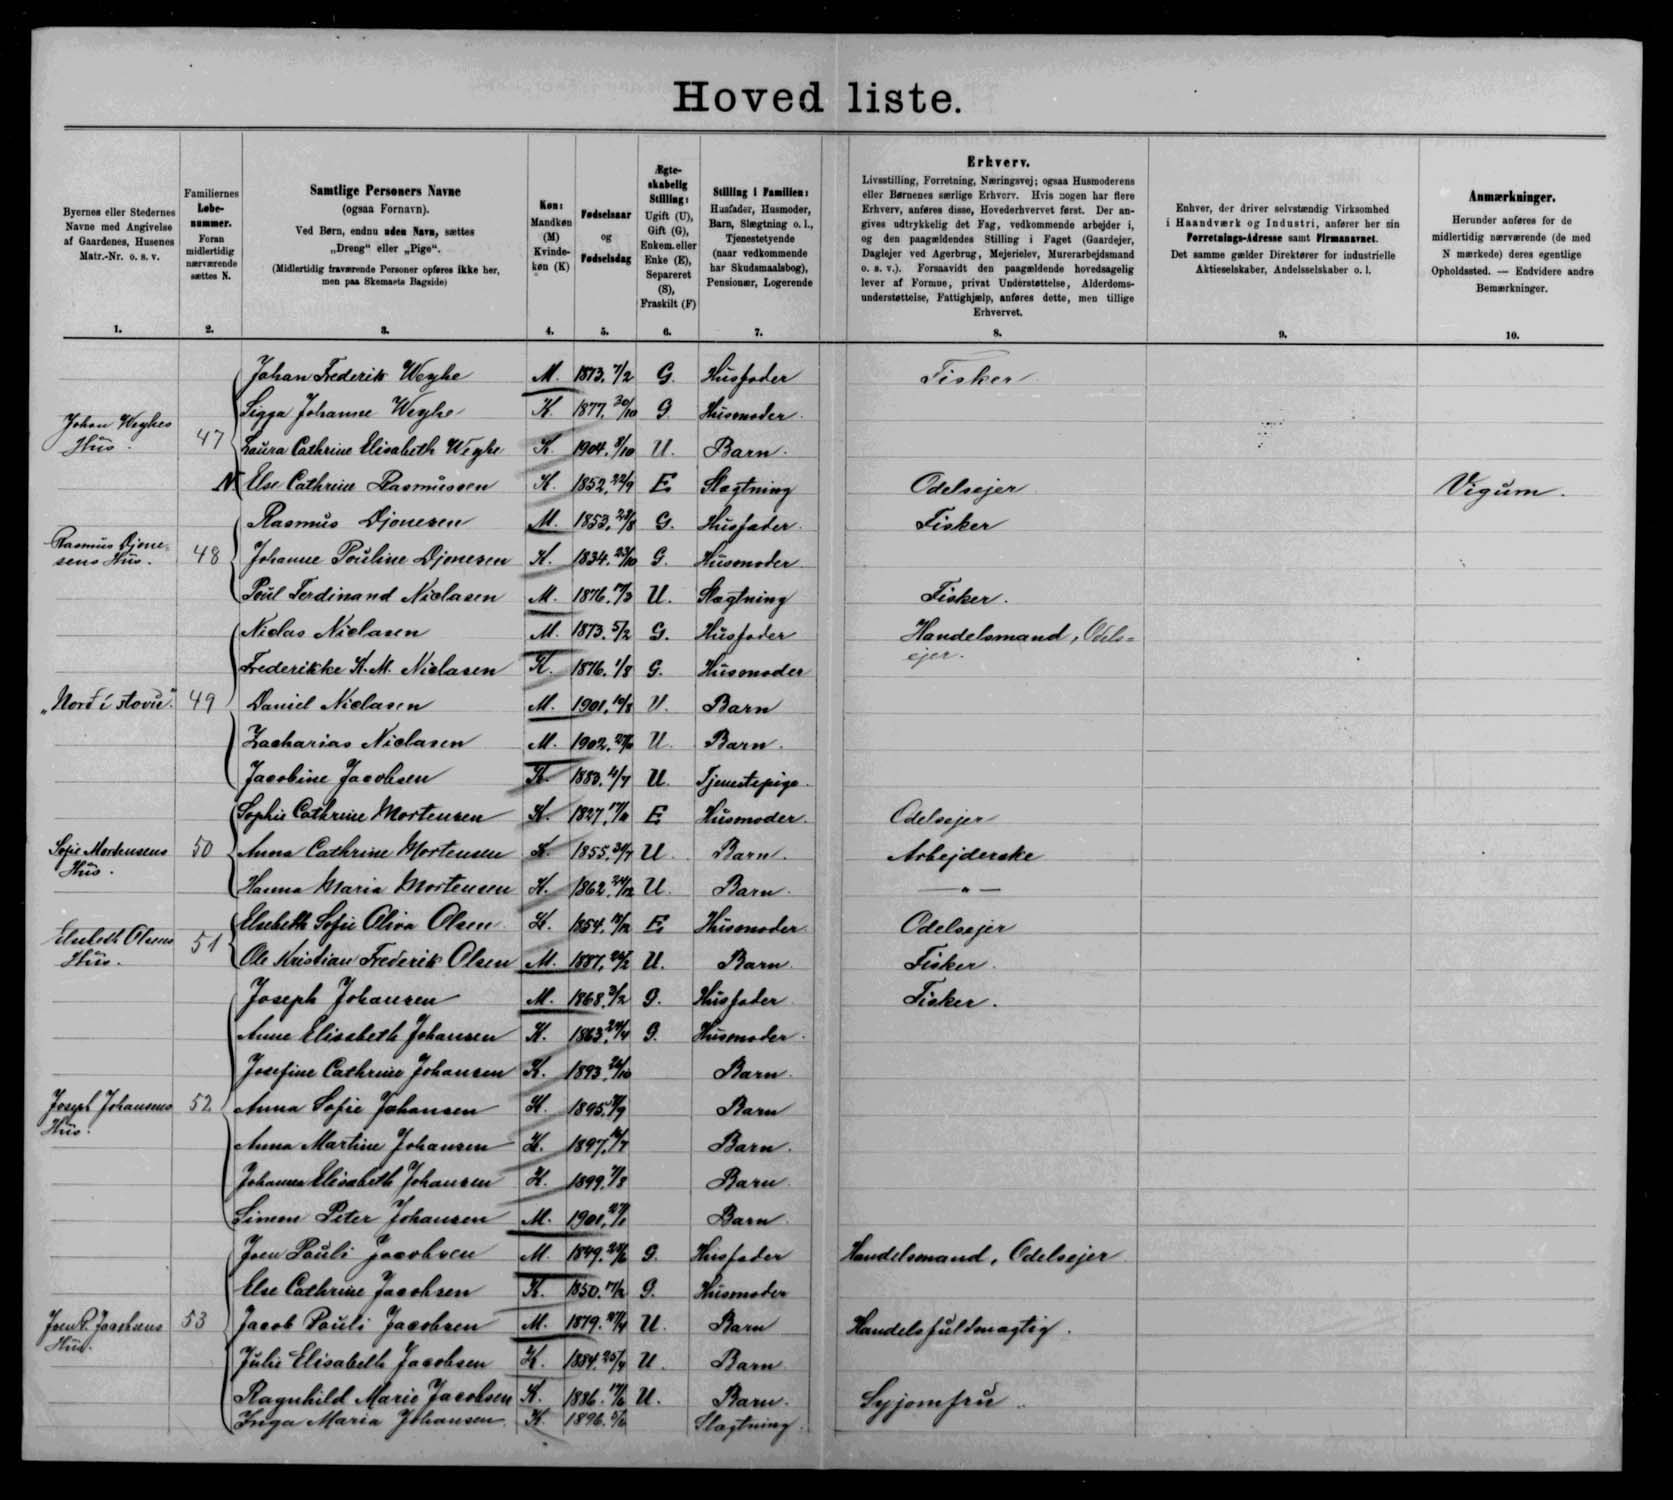 Hoved liste.
Byernes eller Stedernes
Navne med Angivelse
af Gaardenes, Husenes
Matr.-Nr. o. s. v.
Familiernes
Løbe-
nummer.
Foran
midlertidig
nærværende
sættes N.
Samtlige Personers Navne
(ogsaa Fornavn).
Ved Børn, endnu uden Navn, sættes
„Dreng“ eller „Pige“.
(Midlertidig fraværende Personer opføres ikke her,
men paa Skemaets Bagside)
Køn:
Mandkøn
(M)
Kvinde-
køn (K)
Fødselsaar
og
Fødselsdag
Ægte-
skabelig
Stilling:
Ugift (U),
Gift (G),
Enkem. eller
Enke (E),
Separeret
(S),
Fraskilt (F)
Stilling i Familien:
Husfader, Husmoder,
Barn, Slægtning o. l.,
Tjenestetyende
(naar vedkommende
har Skudsmaalsbog),
Pensionær, Logerende
Erhverv.
Livsstilling, Forretning, Næringsvej; ogsaa Husmoderens
eller Børnenes særlige Erhverv. Hvis nogen har flere
Erhverv, anføres disse, Hovederhvervet først. Der an-
gives udtrykkelig det Fag, vedkommende arbejder i,
og den paagældendes Stilling i Faget (Gaardejer,
Daglejer ved Agerbrug, Mejerielev, Murerarbejdsmand
o. s. v.). Forsaavidt den paagældende hovedsagelig
lever af Formue, privat Understøttelse, Alderdoms-
understøttelse, Fattighjælp, anføres dette, men tillige
Erhvervet.
Enhver, der driver selvstændig Virksomhed
i Haandværk og Industri, anfører her sin
Forretnings-Adresse samt Firmanavnet.
Det samme gælder Direktører for industrielle
Aktieselskaber, Andelsselskaber o. l.
Anmærkninger.
Herunder anføres for de
midlertidig nærværende (de med
N mærkede) deres egentlige
Opholdssted. — Endvidere andre
Bemærkninger.
1. 2. 3. 4. 5. 6. 7. 8. 9. 10.
Johan Frederik Weyhe M. 1873. 7/2 G. Husfader Fisker
Sigga Johanne Weyhe K. 1877. 30/10 G Husmoder.
Johan Weyhes
Hus. 47 Laura Cathrine Elisabeth Weyhe K. 1904. 3/10 U. Barn.
N Else Cathrine Rasmussen K. 1852. 22/9 E Slægtning Odelsejer Vigum.
Rasmus Djonesen M. 1853. 23/8 G. Husfader. Fisker
Rasmus Djone-
sens Hus. 48 Johanne Pouline Djonesen K. 1834. 23/10 G. Husmoder
Poul Ferdinand Niclasen M. 1876. U. Slægtning Fisker.
Niclas Niclasen M. 1873. 5/2 G. Husfader Handelsmand, Odels-
ejer.
Frederikke K. M. Niclasen K. 1876. 1/8 G. Husmoder
„Norđ í stovu“. 49 Daniel Niclasen M. 1901. U. Barn
Zacharias Niclasen M. 1902. U. Barn.
Jacobine Jacobsen K. U. Tjenestepige.
Sophie Cathrine Mortensen K. 1827. E Husmoder. Odelsejer
Sofie Mortensens
Hus. 50 Anna Cathrine Mortensen K. 1855. U. Barn. Arbejderske
Hanna Maria Mortensen K. 1862. 24/12 U. Barn. — „ —
Elsebeth Sofie Oliva Olsen K. 1854. E Husmoder Odelsejer
Elsebeth Olsens
Hus. 51 Ole Kristian Frederik Olsen M. 1887. U. Barn. Fisker.
Joseph Johansen M. 1868. 3/2 G. Husfader Fisker.
Anne Elisabeth Johansen K. 1863. G. Husmoder.
Josefine Cathrine Johansen K. 1893. Barn.
Joseph Johansens
Hus. 52 Anna Sofie Johansen K. 1895. Barn
Anna Martine Johansen K. 1897. Barn.
Johanna Elisabeth Johansen K. 1899. Barn.
Simon Peter Johansen M. 1901. Barn.
Joen Pauli Jacobsen M. 1849. G. Husfader Handelsmand, Odelsejer
Else Cathrine Jacobsen K. 1850. G. Husmoder
Joen P. Jacobsens
Hus. 53 Jacob Pauli Jacobsen M. 1879. U. Barn Handelsfuldmægtig.
Julie Elisabeth Jacobsen K. 1884. 25/4 U. Barn.
Ragnhild Marie Jacobsen K. 1886. U. Barn. Syjomfru.
Inga Maria Johansen. K. 1896. Slægtning.